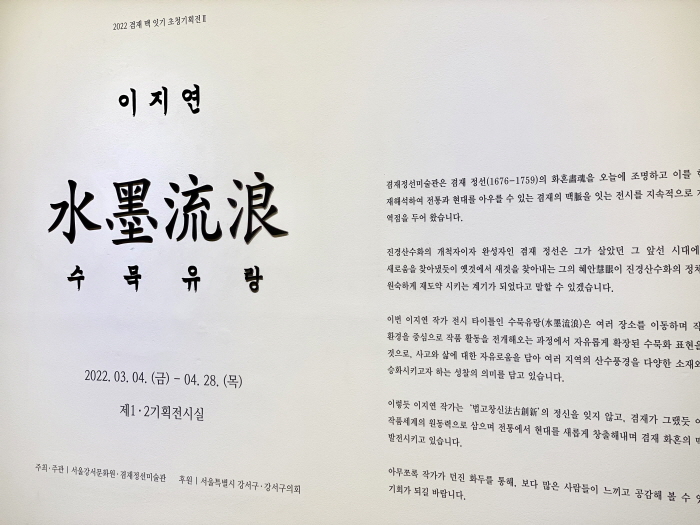 2022 겸재 맥 잇기 초청기획전 II
이지연
水墨流浪
수묵유랑
2022. 03. 04. (금) – 04. 28. (목)
제1·2기획전시실
주최·주관 | 서울강서문화원·겸재정선미술관 후원 | 서울특별시 강서구·강서구의회
겸재정선미술관은 겸재 정선(1676-1759)의 화혼畵魂을 오늘에 조명하고 이를
재해석하여 전통과 현대를 아우를 수 있는 겸재의 맥脈을 잇는 전시를 지속적으로
역점을 두어 왔습니다.
진경산수화의 개척자이자 완성자인 겸재 정선은 그가 살았던 그 앞선 시대에
새로움을 찾아냈듯이 옛것에서 새것을 찾아내는 그의 혜안慧眼이 진경산수화의
원숙하게 재도약 시키는 계기가 되었다고 말할 수 있겠습니다.
이번 이지연 작가 전시 타이틀인 수묵유랑(水墨流浪)은 여러 장소를 이동하며
환경을 중심으로 작품 활동을 전개해오는 과정에서 자유롭게 확장된 수묵화 표현을
것으로, 사고와 삶에 대한 자유로움을 담아 여러 지역의 산수풍경을 다양한 소재와
승화시키고자 하는 성찰의 의미를 담고 있습니다.
이렇듯 이지연 작가는 ‘법고창신法古創新’의 정신을 잊지 않고, 겸재가 그랬듯
작품세계의 원동력으로 삼으며 전통에서 현대를 새롭게 창출해내며 겸재 화혼의
발전시키고 있습니다.
아무쪼록 작가가 던진 화두를 통해, 보다 많은 사람들이 느끼고 공감해 볼 수
기회가 되길 바랍니다.